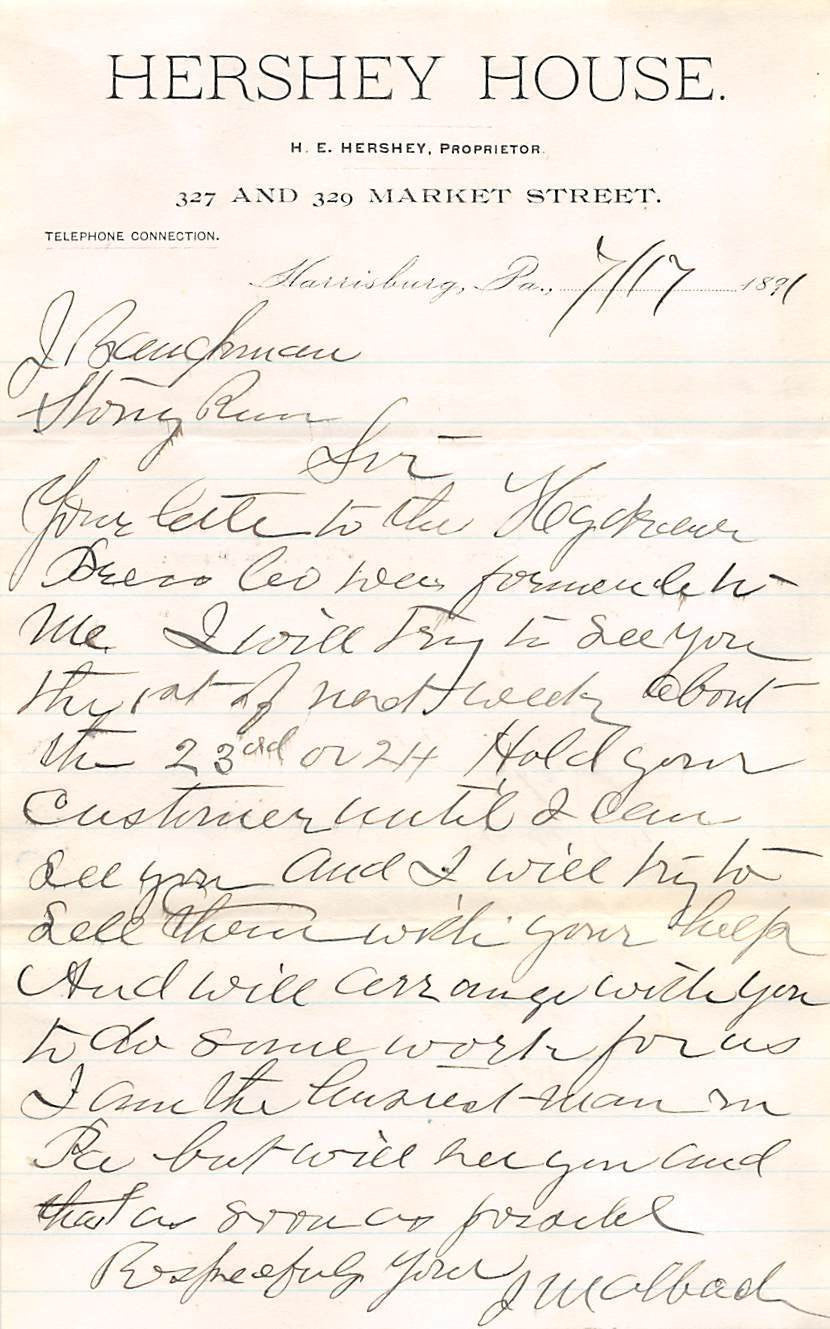 HERSHEY HOUSE.
H. E. HERSHEY, PROPRIETOR.
327 AND 329 MARKET STREET.
TELEPHONE CONNECTION.
Harrisburg, Pa., 7/17 1891
J Baughman
Stony Run
Sir
Your letter to the
Co was forwarded to
Me I will Try to See you
the of next week about
the 23rd or 24 Hold your
Customer until I can
See you And I will try to
Sell them with your help
And will arrange with you
to do some work for us
I am the busiest man in
Pa but will see you and
that as soon as possible
Respectfully Your